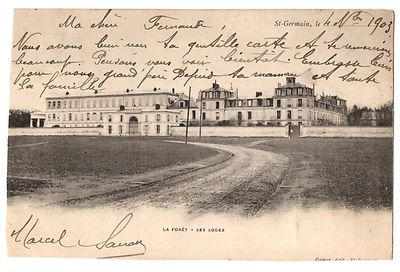 St-Germain, le 4 Nbre 1903
Ma chère Fernande,
Nous avons bien reçu ta gentille carte et te remercions
beaucoup. Pensons vous voir bientôt. Embrasse bien
pour nous grand père
maman et toute
la famille.
Marcel
LA FORÊT - LES LOGES